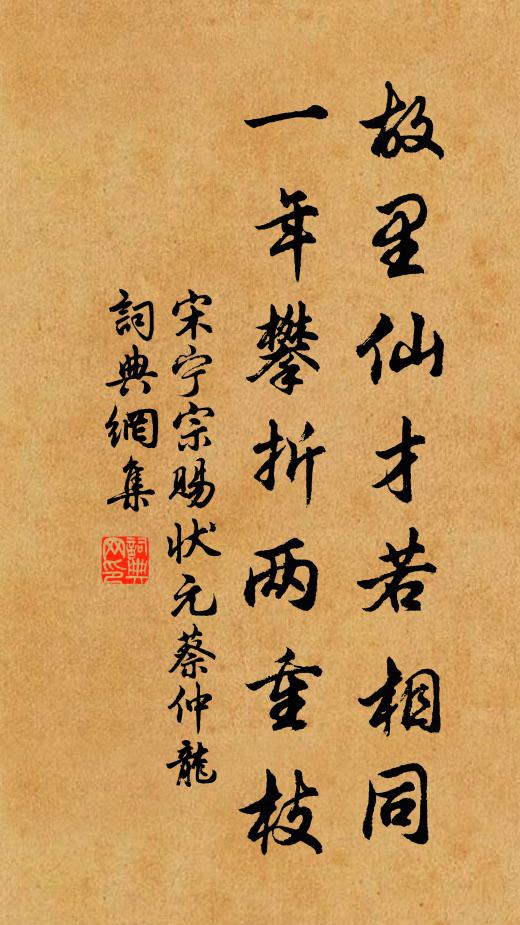 故里仙才若相同
一年攀折两重枝
宋宁宗賜状元蔡仲龍
詞典網集
詞典网印